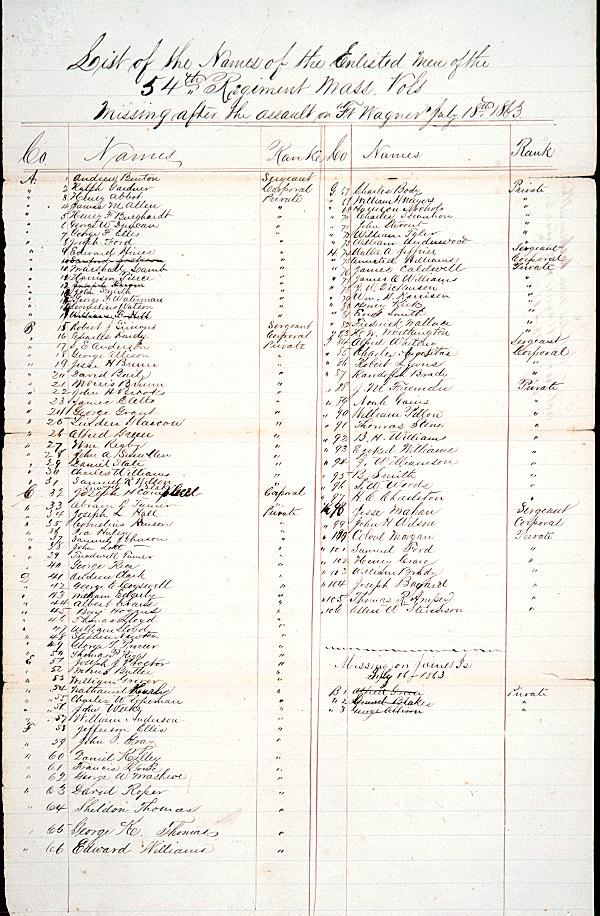 List of the Names of the Enlisted Men of the
54th Regiment Mass. Vols
Missing after the assault on Ft Wagner July 18th 1863.
Co Names Rank
A. 1 Andrew Benton Sergeant
" 2 Ralph Gardner Corporal
" 3 Henry Abbot Private
" 4 James M. Allen "
" 5 Henry F. Burghardt "
" 6 George W. Duncan "
" 7 George F. Ellis "
" 8 Joseph Ford "
" 9 Edward Hines "
" 10 Sanford Jackson "
" 11 Marshall Lamb "
" Harrison Pierce "
" Joseph "
" John Smith "
" George F. Waterman "
" Cornelius Watson "
" William F. Hill "
B 15 Robert J. Simmons Sergeant
" 16 Charles Hardy Corporal
" 17 S. E. Anderson Private
" 18 George Allison "
" 19 Jesse H. Brown "
" 20 David Baily "
" 21 Morris Brown "
" 22 John H. Brooks "
" 23 James "
" 24 George Grant "
" 25 Lindsn "
" 26 Alfred Green "
" 27 Wm Rigby "
" 28 John A. "
" 29 Daniel State "
" 30 Charles Williams "
" 31 Samuel R. Wilson "
C 32 Joseph H. Campbell Corporal
" 33 Abram J. Turner "
" 34 Joseph L. Hall Private
" 35 Cornelius Henson "
" 36 Ira "
" 37 Samuel Johnson "
" 38 John Lott "
" 39 Treadwell Turner "
" 40 George Rice "
D 41 Andrew Clark "
" 42 George E. "
" 43 William Edgerly "
" 44 Albert "
" 45 Benj. Hoggins "
" 46 Thomas Lloyd "
" 47 William Lloyd "
" 48 Stephen Newton "
" 49 George "
" 50 Thomas P. Riggs "
E 51 Joseph J. Proctor "
" 52 Butler "
" 53 William Grover "
" 54 Nathaniel "
" 55 Charles W. Copeman "
" 56 John Weeks "
" 57 William Anderson "
F 58 Jefferson Ellis "
" 59 John J. Gray "
" 60 Daniel Kelley "
" 61 Francis "
" 62 George W. "
" 63 David Roper "
" 64 Sheldon Thomas "
" 65 George K. Thomas "
" 66 Edward Williams "
Co Names Rank
G 67 Charles Body Private
" 68 William Mayers "
" 69 Harrison Nichols "
" 70 Charles Stanton "
" 71 John "
" 72 William Tyler "
" 73 William Underwood "
H 74 Walter A. Jeffries Sergeant
" 75 Williams Corporal
" 76 James Caldwell Private
" 77 James A. Williams "
" 78 J. W. Dickinson "
" 79 Wm. H. Harrison "
" 80 Henry Kirk "
" 81 Enos Smith "
" 82 Frederick Wallace "
" 83 H. W. Worthington "
I 84 Alfred Whiting Sergeant
" 85 Charles Augustus Corporal
" 86 Robert Lyons "
" 87 Randolph Brady "
" 88 J. M. Freeman Private
" 89 Noah Gains "
" 90 William Tilton "
" 91 Thomas Stone "
" 92 B. H. Williams "
" 93 Ezekiel Williams "
" 94 J. Williamson "
" 95 B. Smith "
" 96 J. W. Woods "
" 97 H. C. Charlston "
K 98 Jesse Mahan Sergeant
" 99 John H. Wilson Corporal
" 100 Colonel Morgan Private
" 101 Samuel Ford "
" 102 Henry Craig "
" 103 William Brady "
" 104 Joseph Bayard "
" 105 Thomas R. Ampsey "
" 106 Allen W. Stevenson "
Missing on James Is
July 16th 1863
B 1 Alfred Green Private
" 2 Samuel Blakes "
" 3 George Allison "